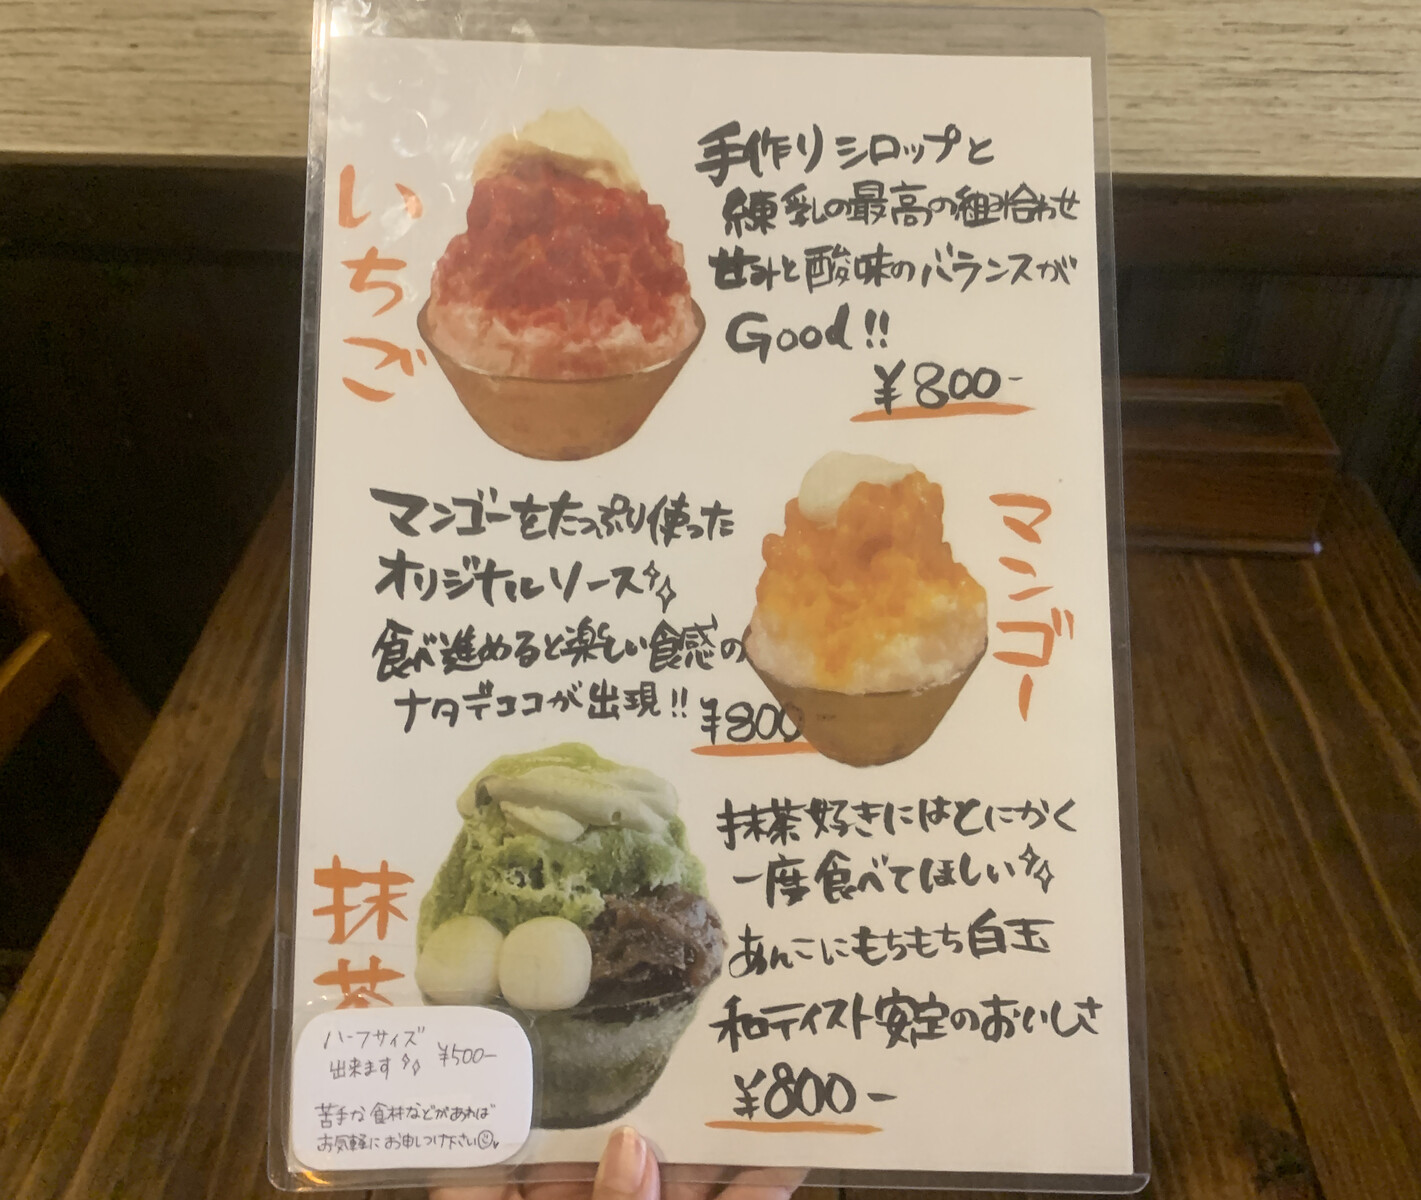 いちご
手作りシロップと
練乳の最高の組み合わせ
甘みと酸味のバランスが
Good!!
¥800-
マンゴー
マンゴーをたっぷり使った
オリジナルソース
食べ進めると楽しい食感の
ナタデココが出現!!
¥800
抹茶
抹茶好きにはとにかく
一度食べてほしい
あんこにもちもち白玉
和テイスト安定のおいしさ
¥800-
ハーフサイズ
出来ます ¥500-
苦手な食材などがあれば
お気軽にお申しつけ下さい